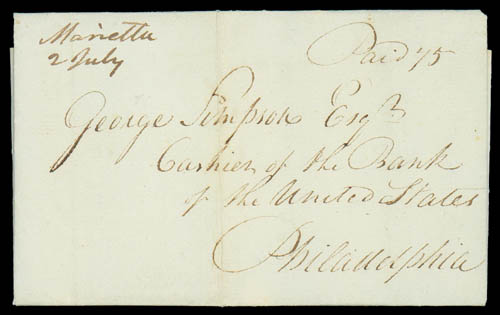 Marietta
2 July
Paid 75
George Simpson Esqr
Cashier of the Bank
of the United States
Philadelphia